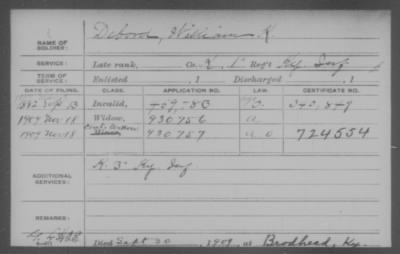 NAME OF SOLDIER: Debord, William K.
SERVICE: Late rank, Co. K, Reg't Ky. Inf
TERM OF SERVICE: Enlisted , 1 Discharged , 1
DATE OF FILING. CLASS. APPLICATION NO. LAW. CERTIFICATE NO.
1882 Sept 13 Invalid, 459,750
1909 Nov 18 Widow, 930756 a
1909 Nov 18 Minor, 930757 a 724554
ADDITIONAL SERVICES: K. 3" Ky Inf
REMARKS:
Died Sept 20, 1909, at Brodhead, Ky.